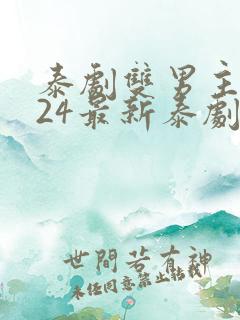 泰劇雙男主
24最新泰劇
世間若有神
未任同意禁止結義